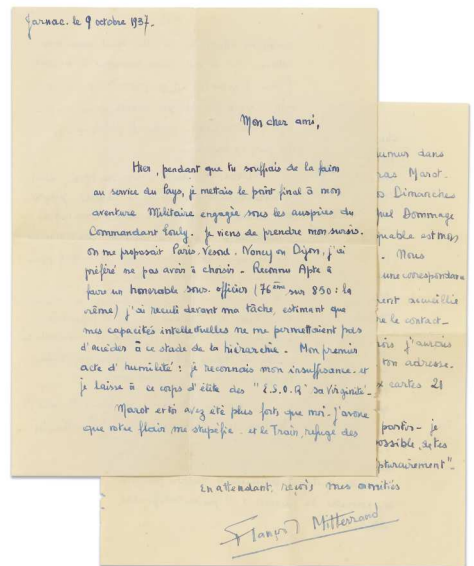 Jarnac. le 9 octobre 1937.
Mon cher ami,
Hier, pendant que tu souffrais de la faim
au service du Pays, je mettais le point final à mon
aventure Militaire engagée sous les auspices du
Commandant Louig. Je viens de prendre mon sursis.
on me proposait Paris, Vesoul, Nancy ou Dijon, j'ai
préféré ne pas avoir à choisir. Reconnu Apte à
faire un honorable sous-officier (76ème sur 850 : la
crème) j'ai reculé devant ma tâche, estimant que
mes capacités intellectuelles ne me permettaient pas
d'accéder à ce stade de la hiérarchie. Mon premier
acte d'humilité : je reconnais mon insuffisance. et
je laisse à ce corps d'élite des "E.S.O.R" sa Virginité.
Marot et toi avez été plus forts que moi. J'avoue
que votre flair me stupéfie. et le Train, refuge des
umur dans
as Marot.
Dimanches
uel Dommage
quable est mos
. Nous
une correspondance
ment accueillie
e le contact.
j'aurais
ton adresse.
x cartes 21
partir. je
possible, êtes
pturairement".
En attendant, reçois mes amitiés
François Mitterrand